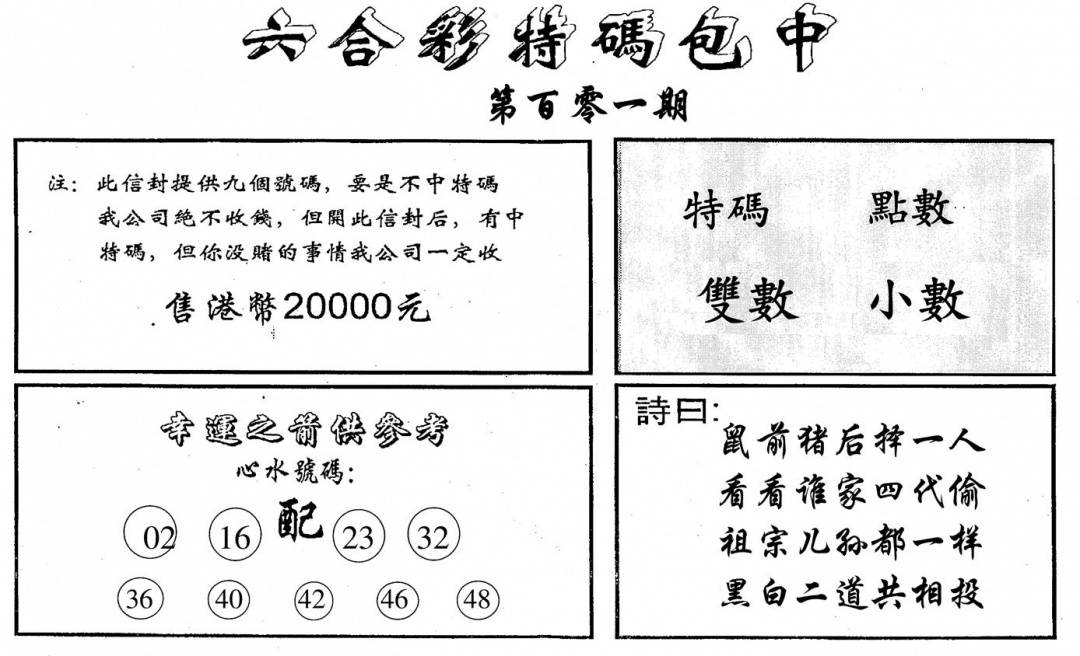 六合彩特碼包中
第百零一期
注：此信封提供九個號碼，要是不中特碼
我公司絶不收錢，但開此信封后，有中
特碼，但你没賭的事情我公司一定收
售港幣20000元
特碼 點數
雙數 小數
幸運之箭供參考
心水號碼：
配
02 16 23 32
36 40 42 46 48
詩曰：
鼠前猪后择一人
看看谁家四代偷
祖宗儿孙都一样
黑白二道共相投